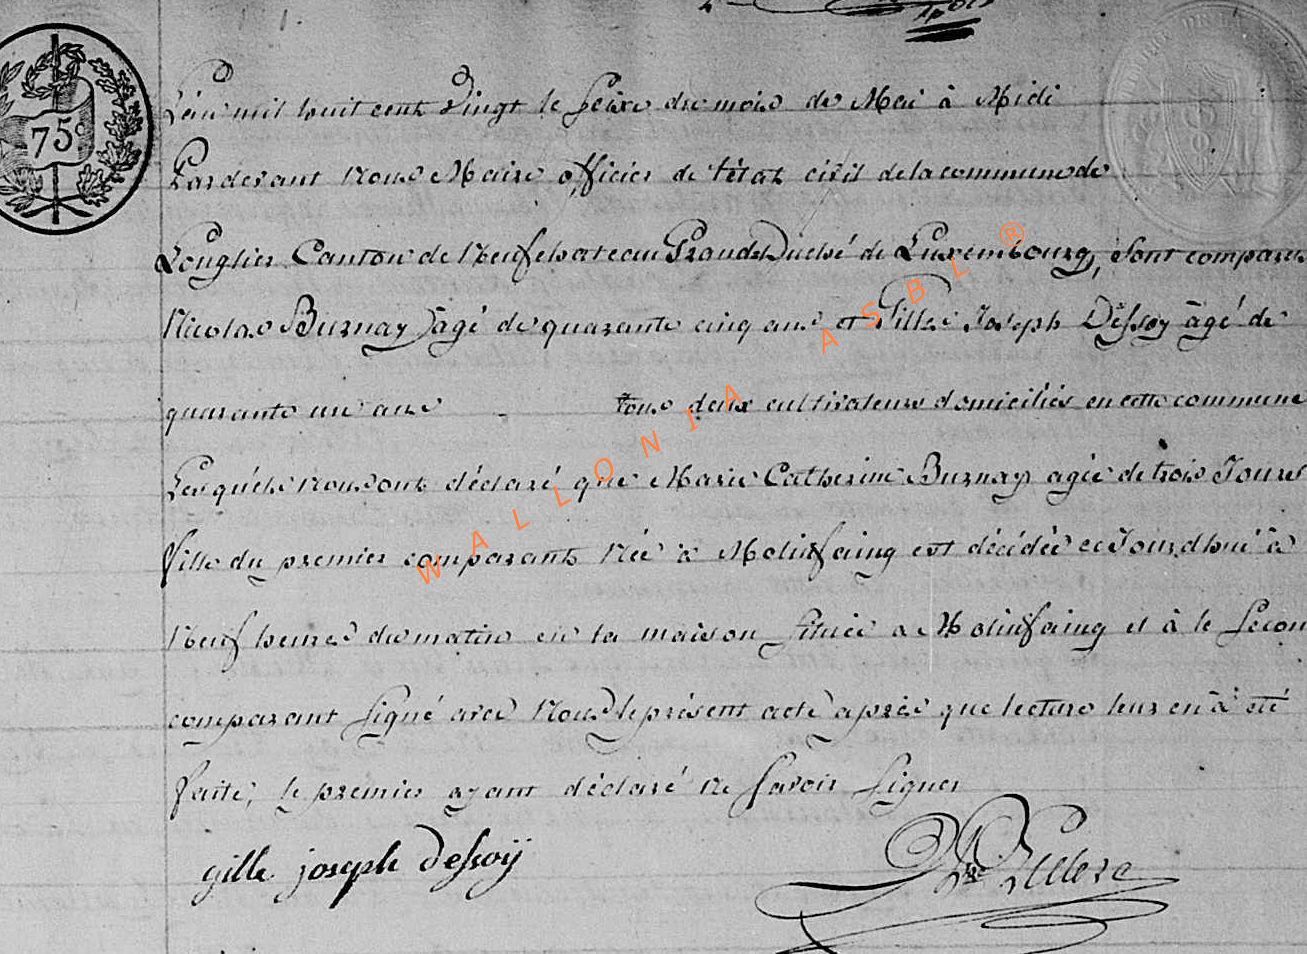 75c
L'an mil huit cent Vingt le seize du mois de Mai à Midi
Pardevant Nous Maire officier de l'état civil de la commune de
Longlier Canton de Neufchateau Grand Duché de Luxembourg, sont comparus
Nicolas Burnay âgé de quarante cinq ans et Gille Joseph Dessoy âgé de
quarante un ans tous deux cultivateurs domiciliés en cette commune
Lesquels Nous ont déclaré que Marie Catherine Burnay agée de trois Jours
fille du premier comparant Née à Molinfaing est décédée ce Jourdhui à
Neuf heures du matin en la maison située a Molinfaing et à le secon
comparant signé avec Nous le présent acte après que lecture leur en à été
faite, le premier ayant déclaré ne savoir signer
gille joseph dessoÿ
WALLONIA ASBL ®